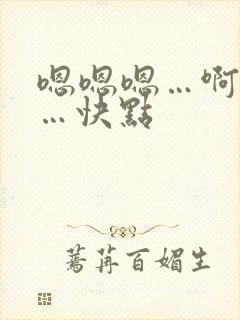 嗯嗯嗯…啊
…快點
蔫苒百媚生